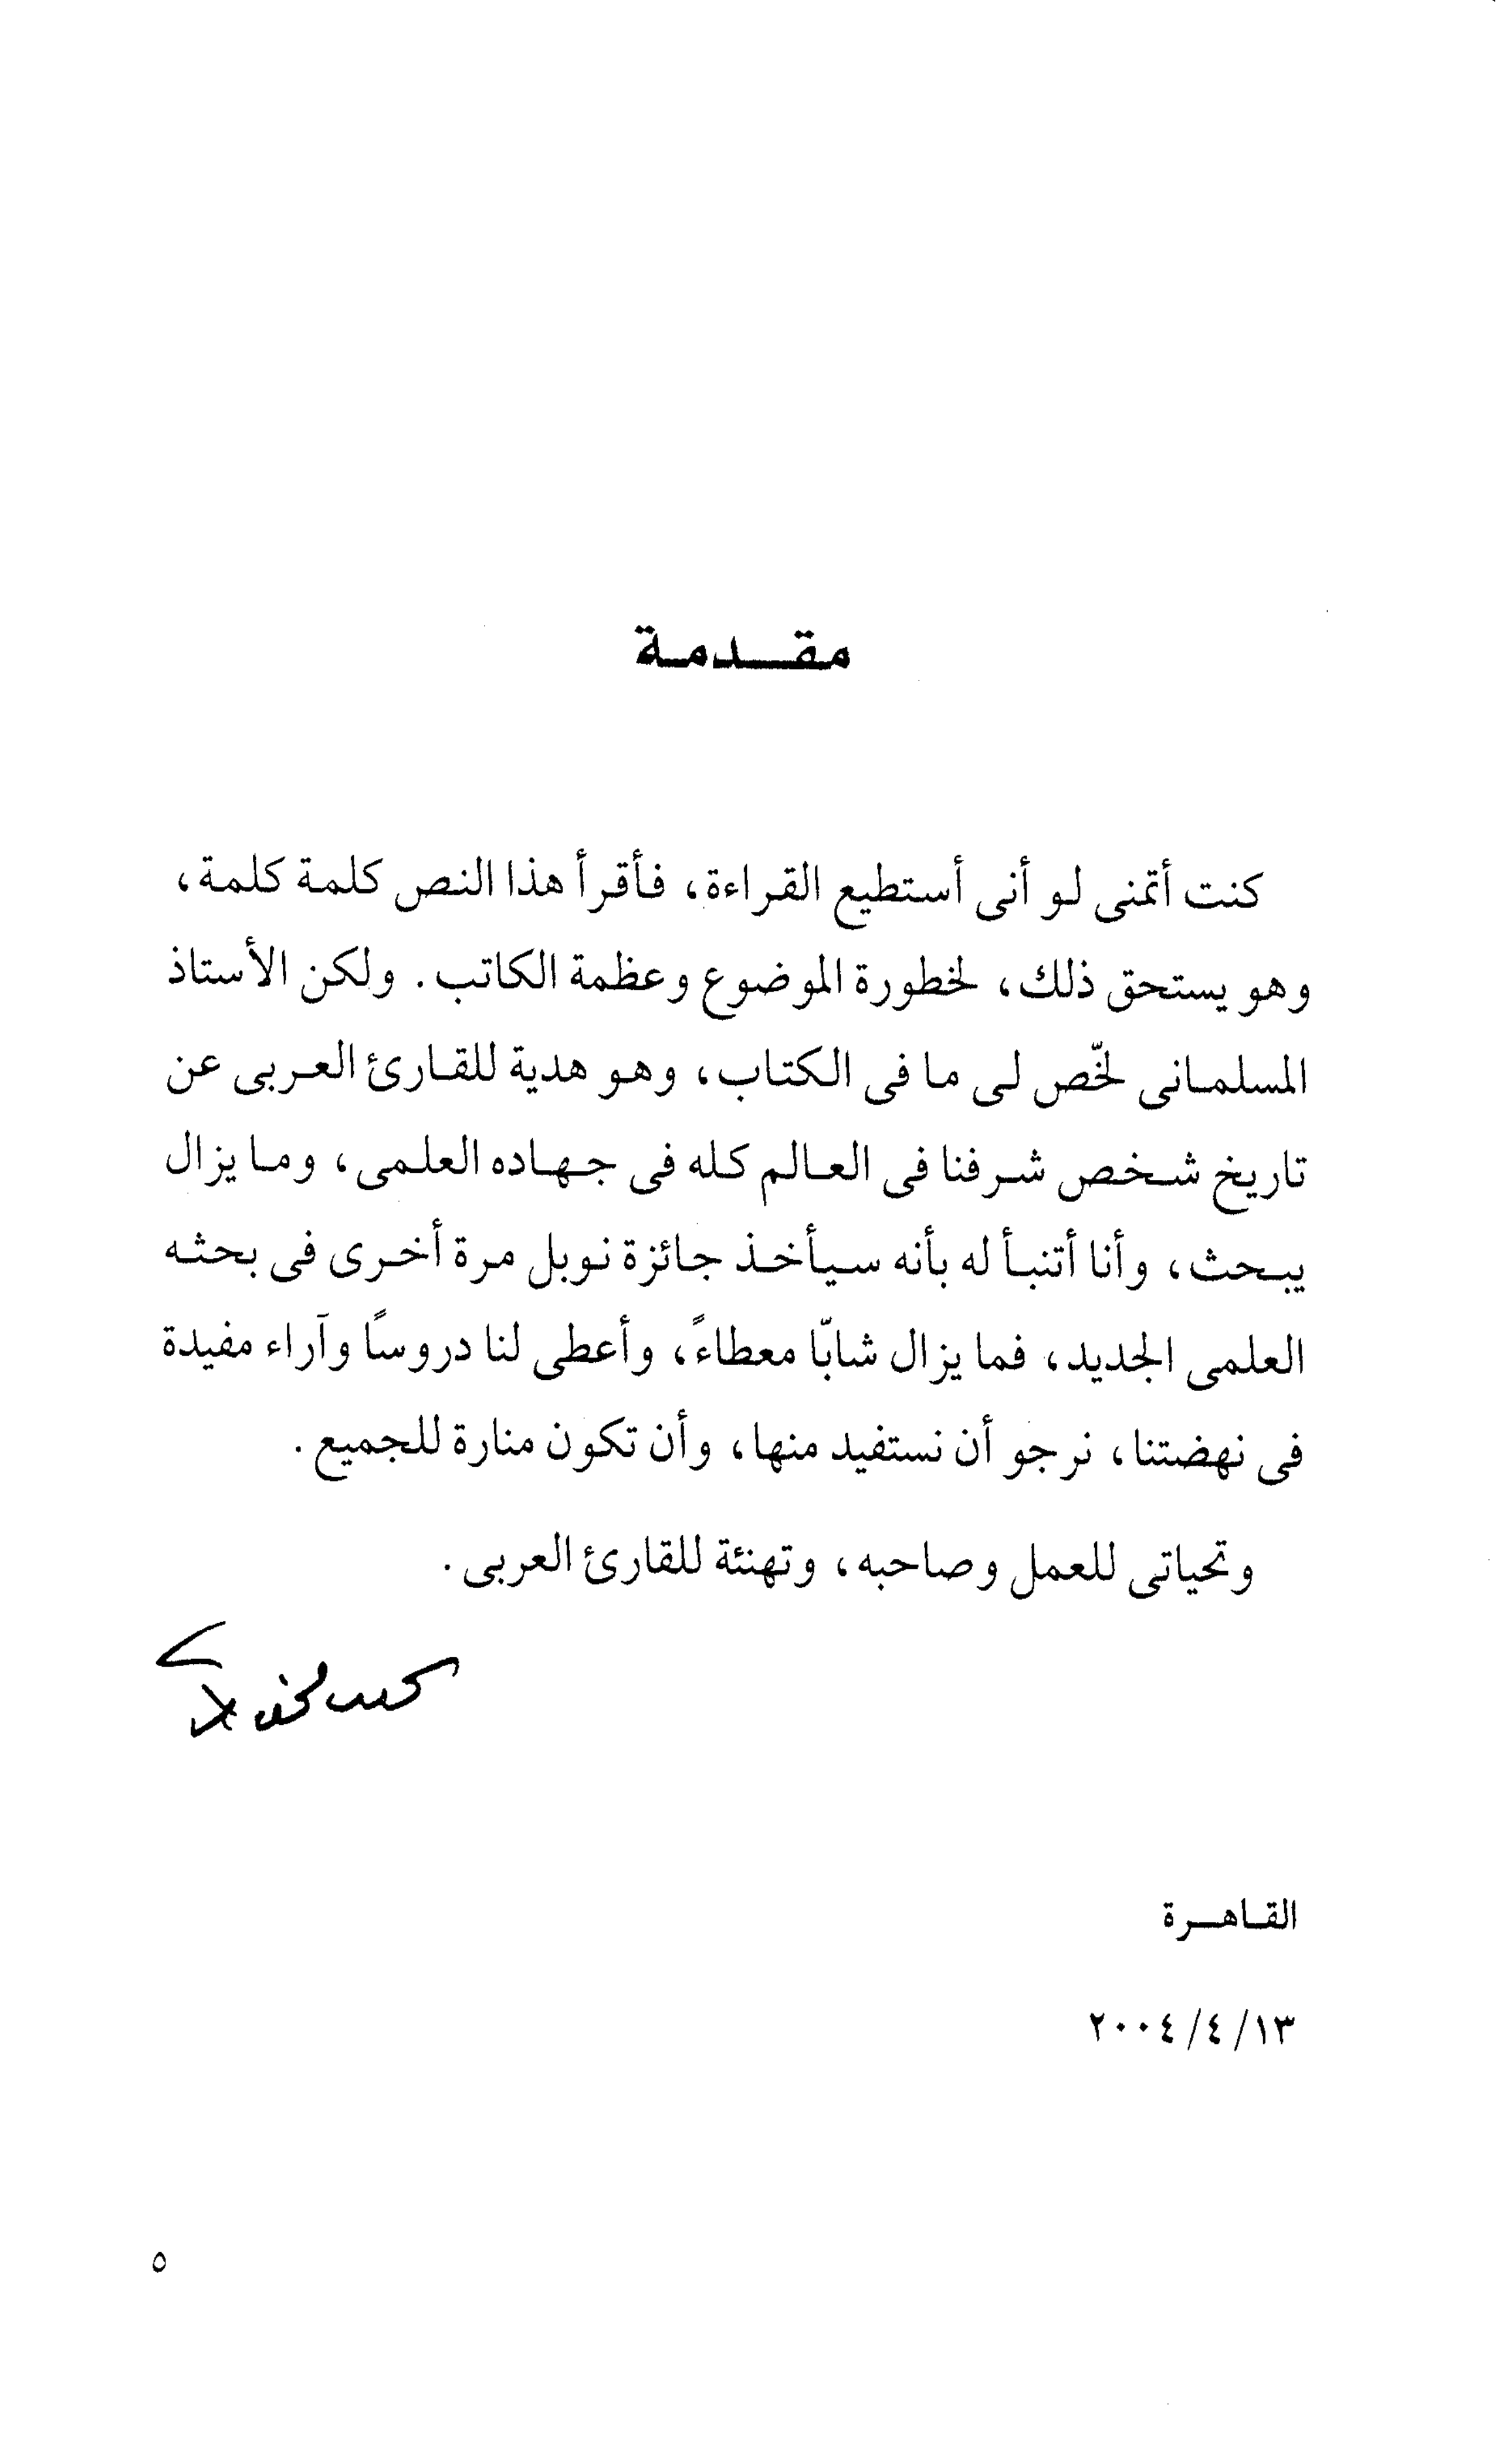 مقدمة
كنت أتمنى لو أنى أستطيع القراءة، فأقرأ هذا النص كلمة كلمة،
وهو يستحق ذلك، لخطورة الموضوع وعظمة الكاتب. ولكن الأستاذ
المسلمانى لخّص لى ما فى الكتاب، وهو هدية للقارئ العربى عن
تاريخ شخص شرفنا فى العالم كله فى جهاده العلمى، وما يزال
يبحث، وأنا أتنبأ له بأنه سيأخذ جائزة نوبل مرة أخرى فى بحثه
العلمى الجديد، فما يزال شابّا معطاءً، وأعطى لنا دروسًا وآراء مفيدة
فى نهضتنا، نرجو أن نستفيد منها، وأن تكون منارة للجميع.
وتحياتى للعمل وصاحبه، وتهنئة للقارئ العربى.
القاهرة
١٣/٤/٢٠٠٤
٥